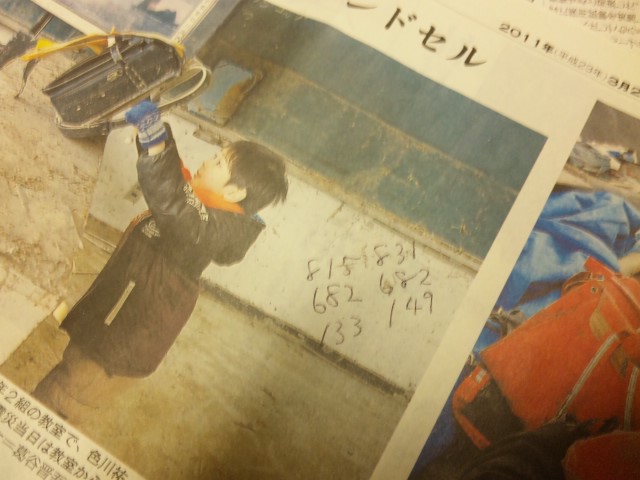 ンドセル
2011年(平成23年)3月2
815 831
682 682
133 149
年2組の教室で、色川祐
震災当日は教室から